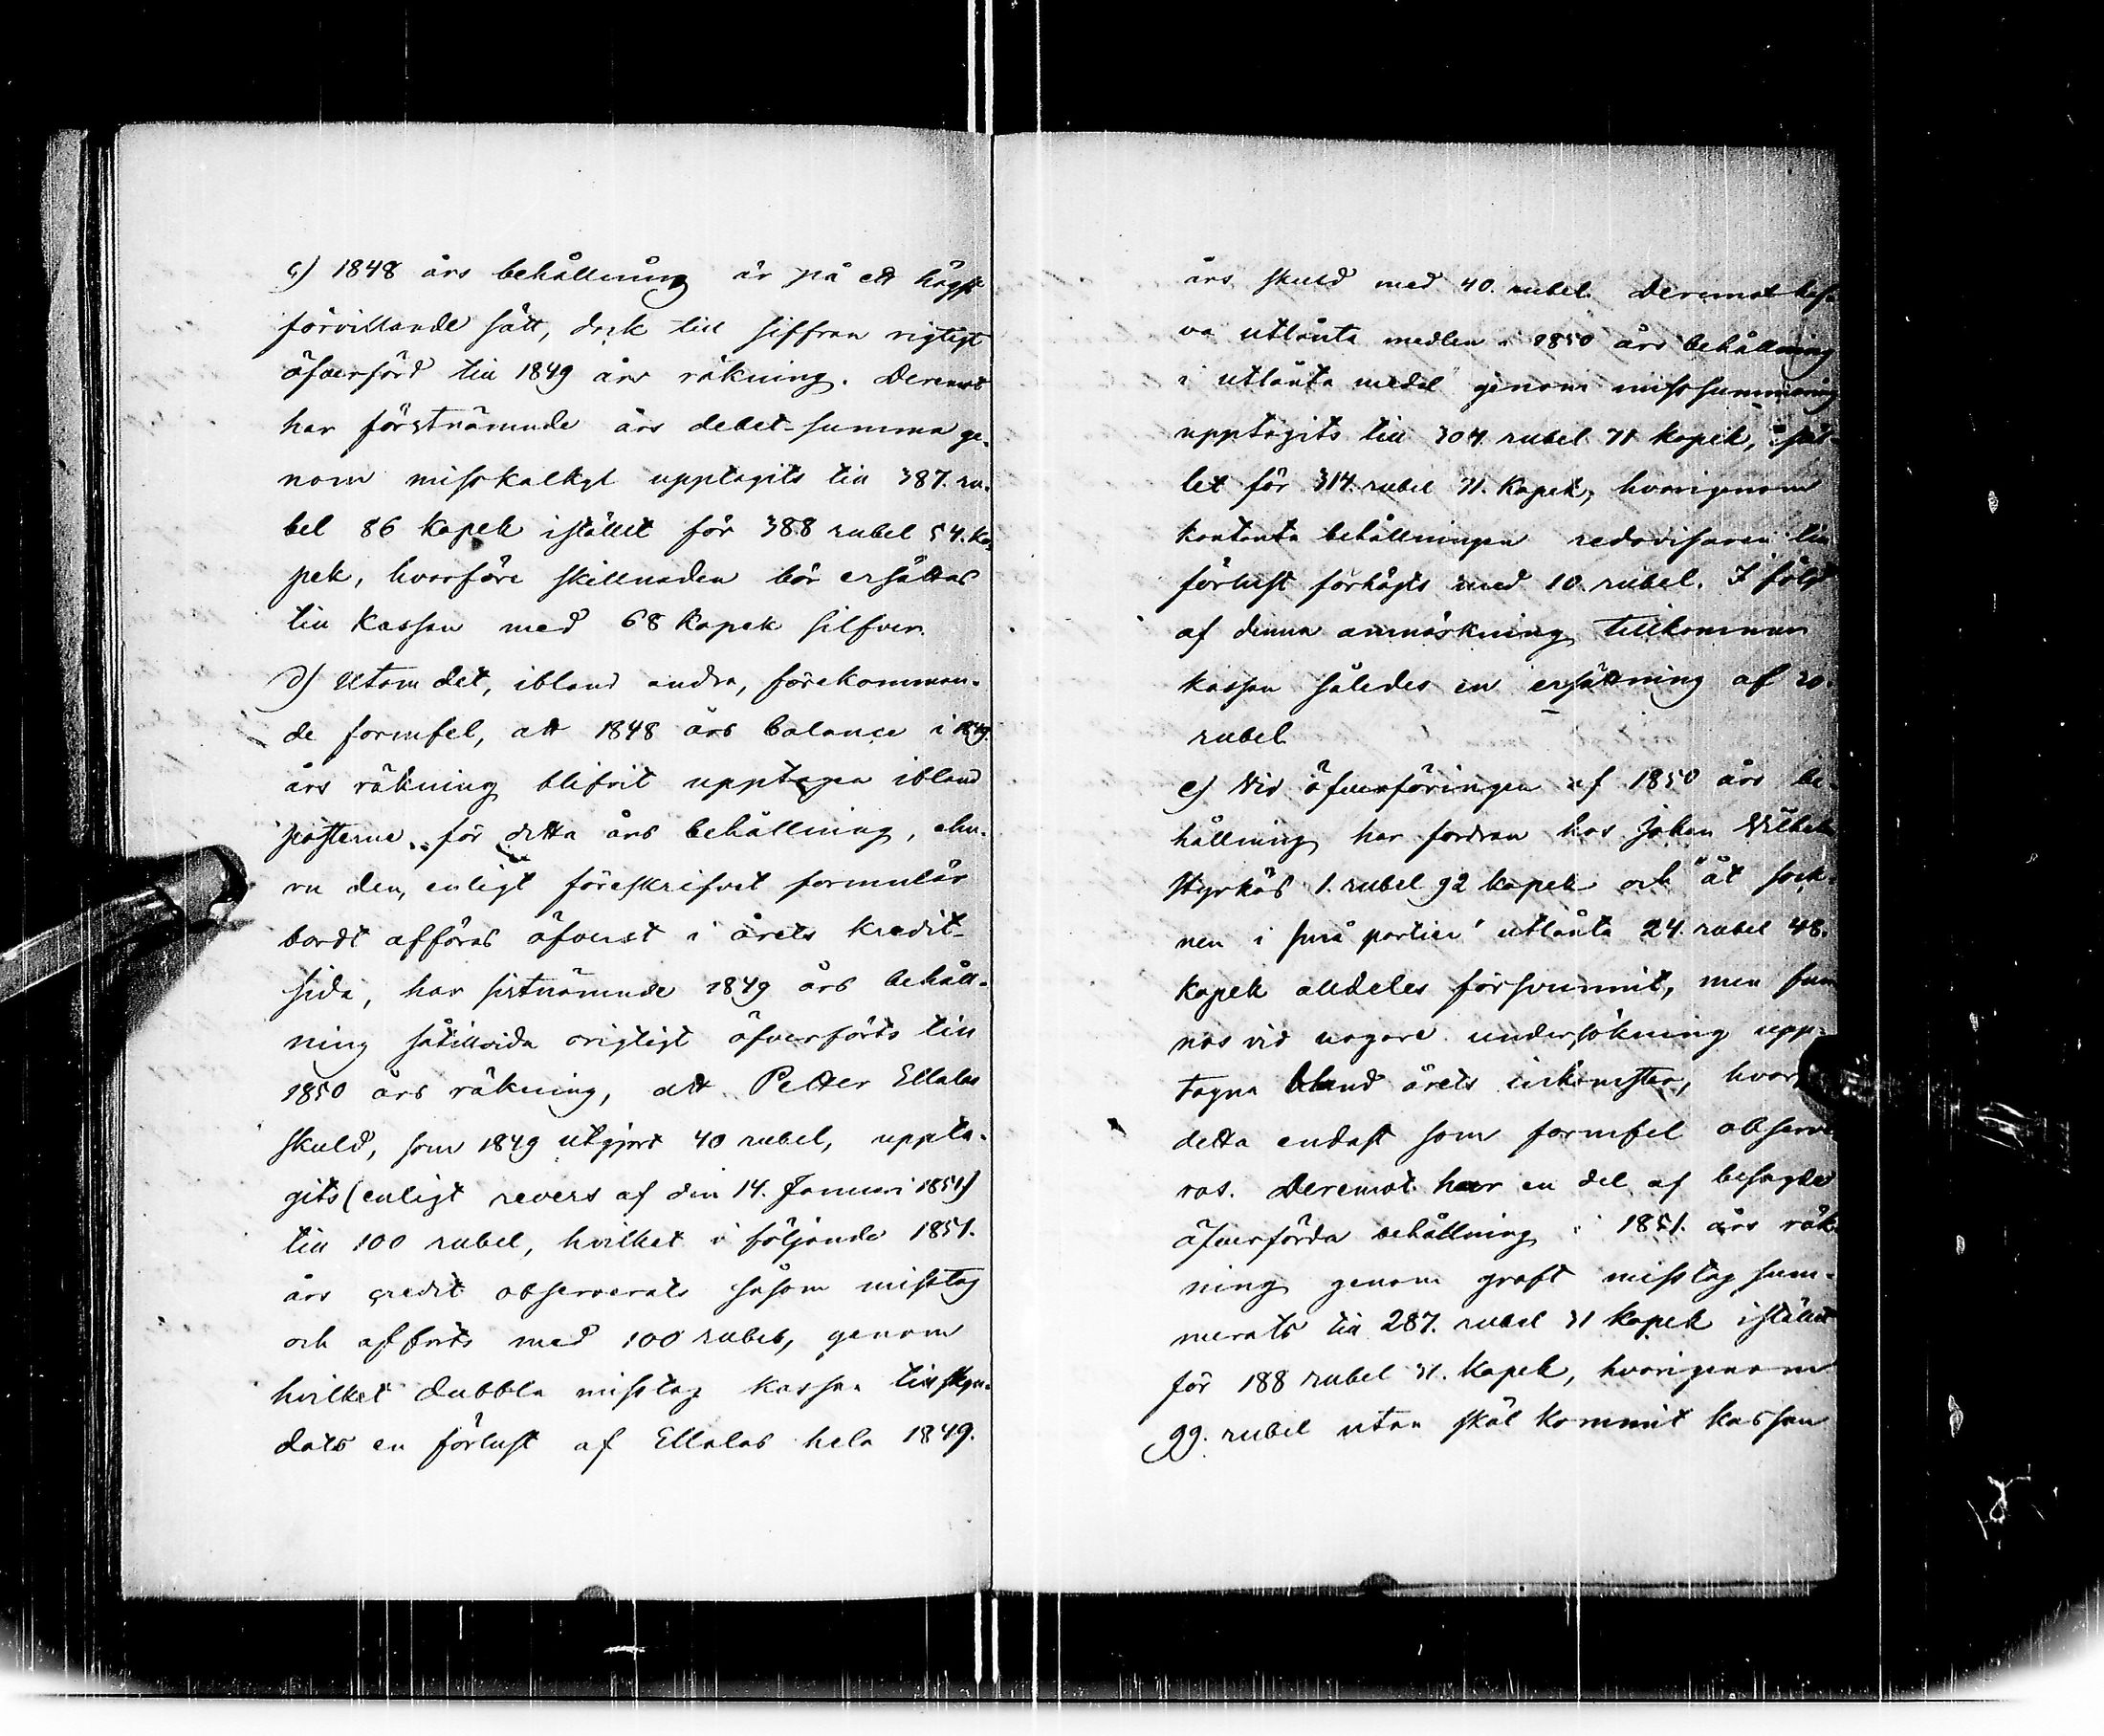 c) 1848 års behållning är på ett högst
förvillande sätt, dock till siffran rigtigt
öfverförd till 1849 års räkning. Deremot
har förstnämnde års debet-summa ge-
nom misskalkyl upptagits till 387. ru-
bel 86 kopek istället för 388 rubel 54. ko-
pek, hvarföre skillnaden bör ersättas
till kassan med 68 kopek silfver.
d) Utom det, ibland andra, förekomman-
de formfel, att 1848 års balance i 1849.
års räkning blifvit upptagen ibland
posterne för detta års behållning, ehu-
ru den, enligt föreskrifvet formulär
bordt afföras öfverst i årets kredit-
sida, har sistnämnde 1849 års behåll-
ning såtillvida origtigt öfverförts till
1850 års räkning, att Petter Ellalas
skuld, som 1849 utgjort 40 rubel, uppta-
gits (enligt revers af den 14. Januari 1851)
till 100 rubel, hvilket i följande 1851.
års credit observerats såsom misstag
och afförts med 100 rubel, genom
hvilket dubbla misstag kassan tillskyn-
dats en förlust af Ellalas hela 1849.
års skuld med 40. rubel. Deremot haf-
va utlånta medlen i 1850 års behållning
i utlånta medel genom missummering
upptagits till 304. rubel 71 kopek, istäl-
let för 314. rubel 71. kopek, hvarigenom
kontanta behållningen redovisaren till
förlust förhöjts med 10. rubel. I följd
af denna anmärkning tillkommer
kassan således en ersättning af 30.
rubel
e) Vid öfverföringen af 1850 års be-
hållning har fordran hos Johan Wilhelm
Styrkäs 1. rubel 92 kopek och "åt sock-
nen i små partier" utlånta 24. rubel 48.
kopek alldeles försvunnit, men fun-
nos vid nogare undersökning upp-
tagna bland årets inkomster, hvarf.
detta endast som formfel observe-
ras. Deremot har en del af besagde
öfverförda behållning i 1851. års räk-
ning genom groft misstag sum-
merats till 287. rubel 31 kopek istället
för 188 rubel 31. kopek, hvarigenom
99. rubel utan skäl kommit kassan